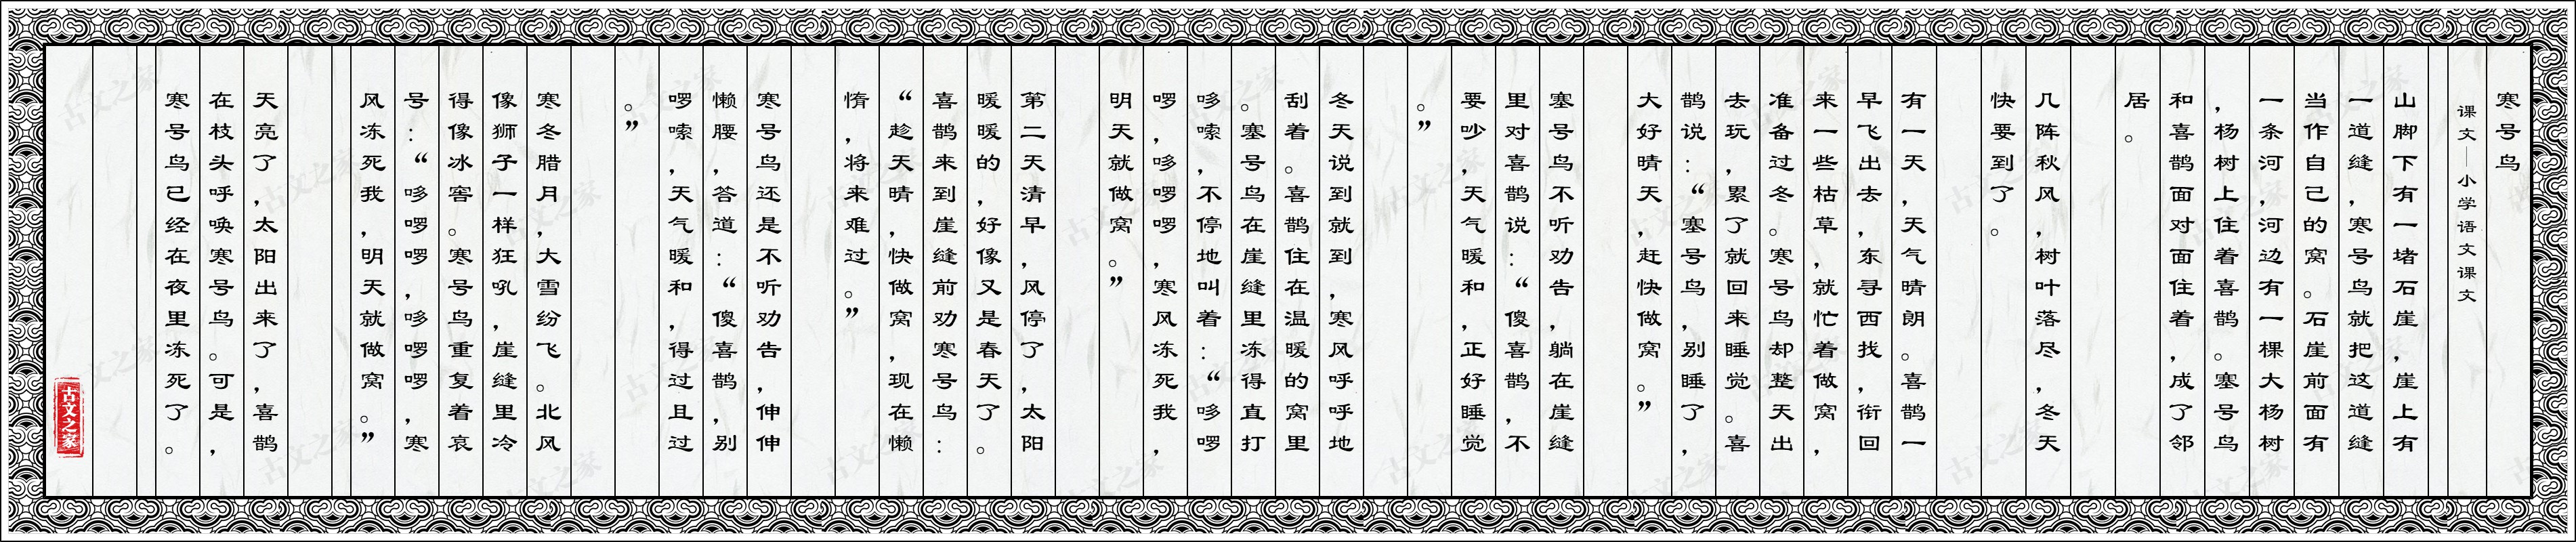 寒号鸟
课文—小学语文课文
山脚下有一堵石崖，崖上有
一道缝，寒号鸟就把这道缝
当作自己的窝。石崖前面有
一条河，河边有一棵大杨树
，杨树上住着喜鹊。塞号鸟
和喜鹊面对面住着，成了邻
居。
几阵秋风，树叶落尽，冬天
快要到了。
有一天，天气晴朗。喜鹊一
早飞出去，东寻西找，衔回
来一些枯草，就忙着做窝，
准备过冬。寒号鸟却整天出
去玩，累了就回来睡觉。喜
鹊说：“塞号鸟，别睡了，
大好晴天，赶快做窝。”
塞号鸟不听劝告，躺在崖缝
里对喜鹊说：“傻喜鹊，不
要吵，天气暖和，正好睡觉
。”
冬天说到就到，寒风呼呼地
刮着。喜鹊住在温暖的窝里
。塞号鸟在崖缝里冻得直打
哆嗦，不停地叫着：“哆啰
啰，哆啰啰，寒风冻死我，
明天就做窝。”
第二天清早，风停了，太阳
暖暖的，好像又是春天了。
喜鹊来到崖缝前劝寒号鸟：
“趁天晴，快做窝，现在懒
惰，将来难过。”
寒号鸟还是不听劝告，伸伸
懒腰，答道：“傻喜鹊，别
啰嗦，天气暖和，得过且过
。”
寒冬腊月，大雪纷飞。北风
像狮子一样狂吼，崖缝里冷
得像冰窖。寒号鸟重复着哀
号：“哆啰啰，哆啰啰，寒
风冻死我，明天就做窝。”
天亮了，太阳出来了，喜鹊
在枝头呼唤寒号鸟。可是，
寒号鸟已经在夜里冻死了。
古文之家